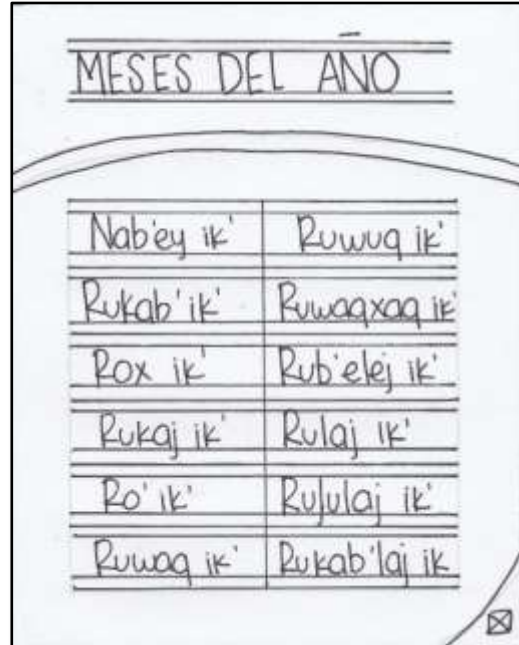 MESES DEL AÑO
Nab'ey ik' Ruwuq ik'
Rukab' ik' Ruwaqxaq ik'
Rox ik' Rub'elej ik'
Rukaj ik' Rulaj ik'
Ro' ik' Rujulaj ik'
Ruwaq ik' Rukab'laj ik